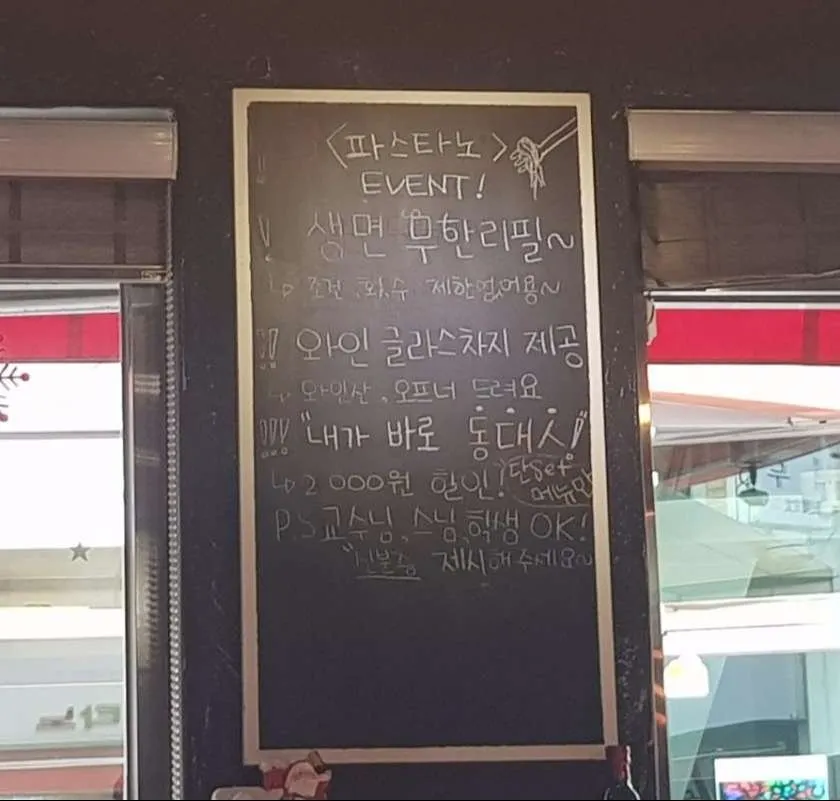 <파스타노>
EVENT!
! 생면 무한리필~
↳ 조건, 횟수 제한없어용~
!! 와인 글라스차지 제공
↳ 와인잔, 오프너 드려요
!!! "내가 바로 동대人!"
↳ 2000원 할인! 단 set 메뉴만
P.S 교수님, 스님, 학생 OK!
"신분증 제시해주세요~